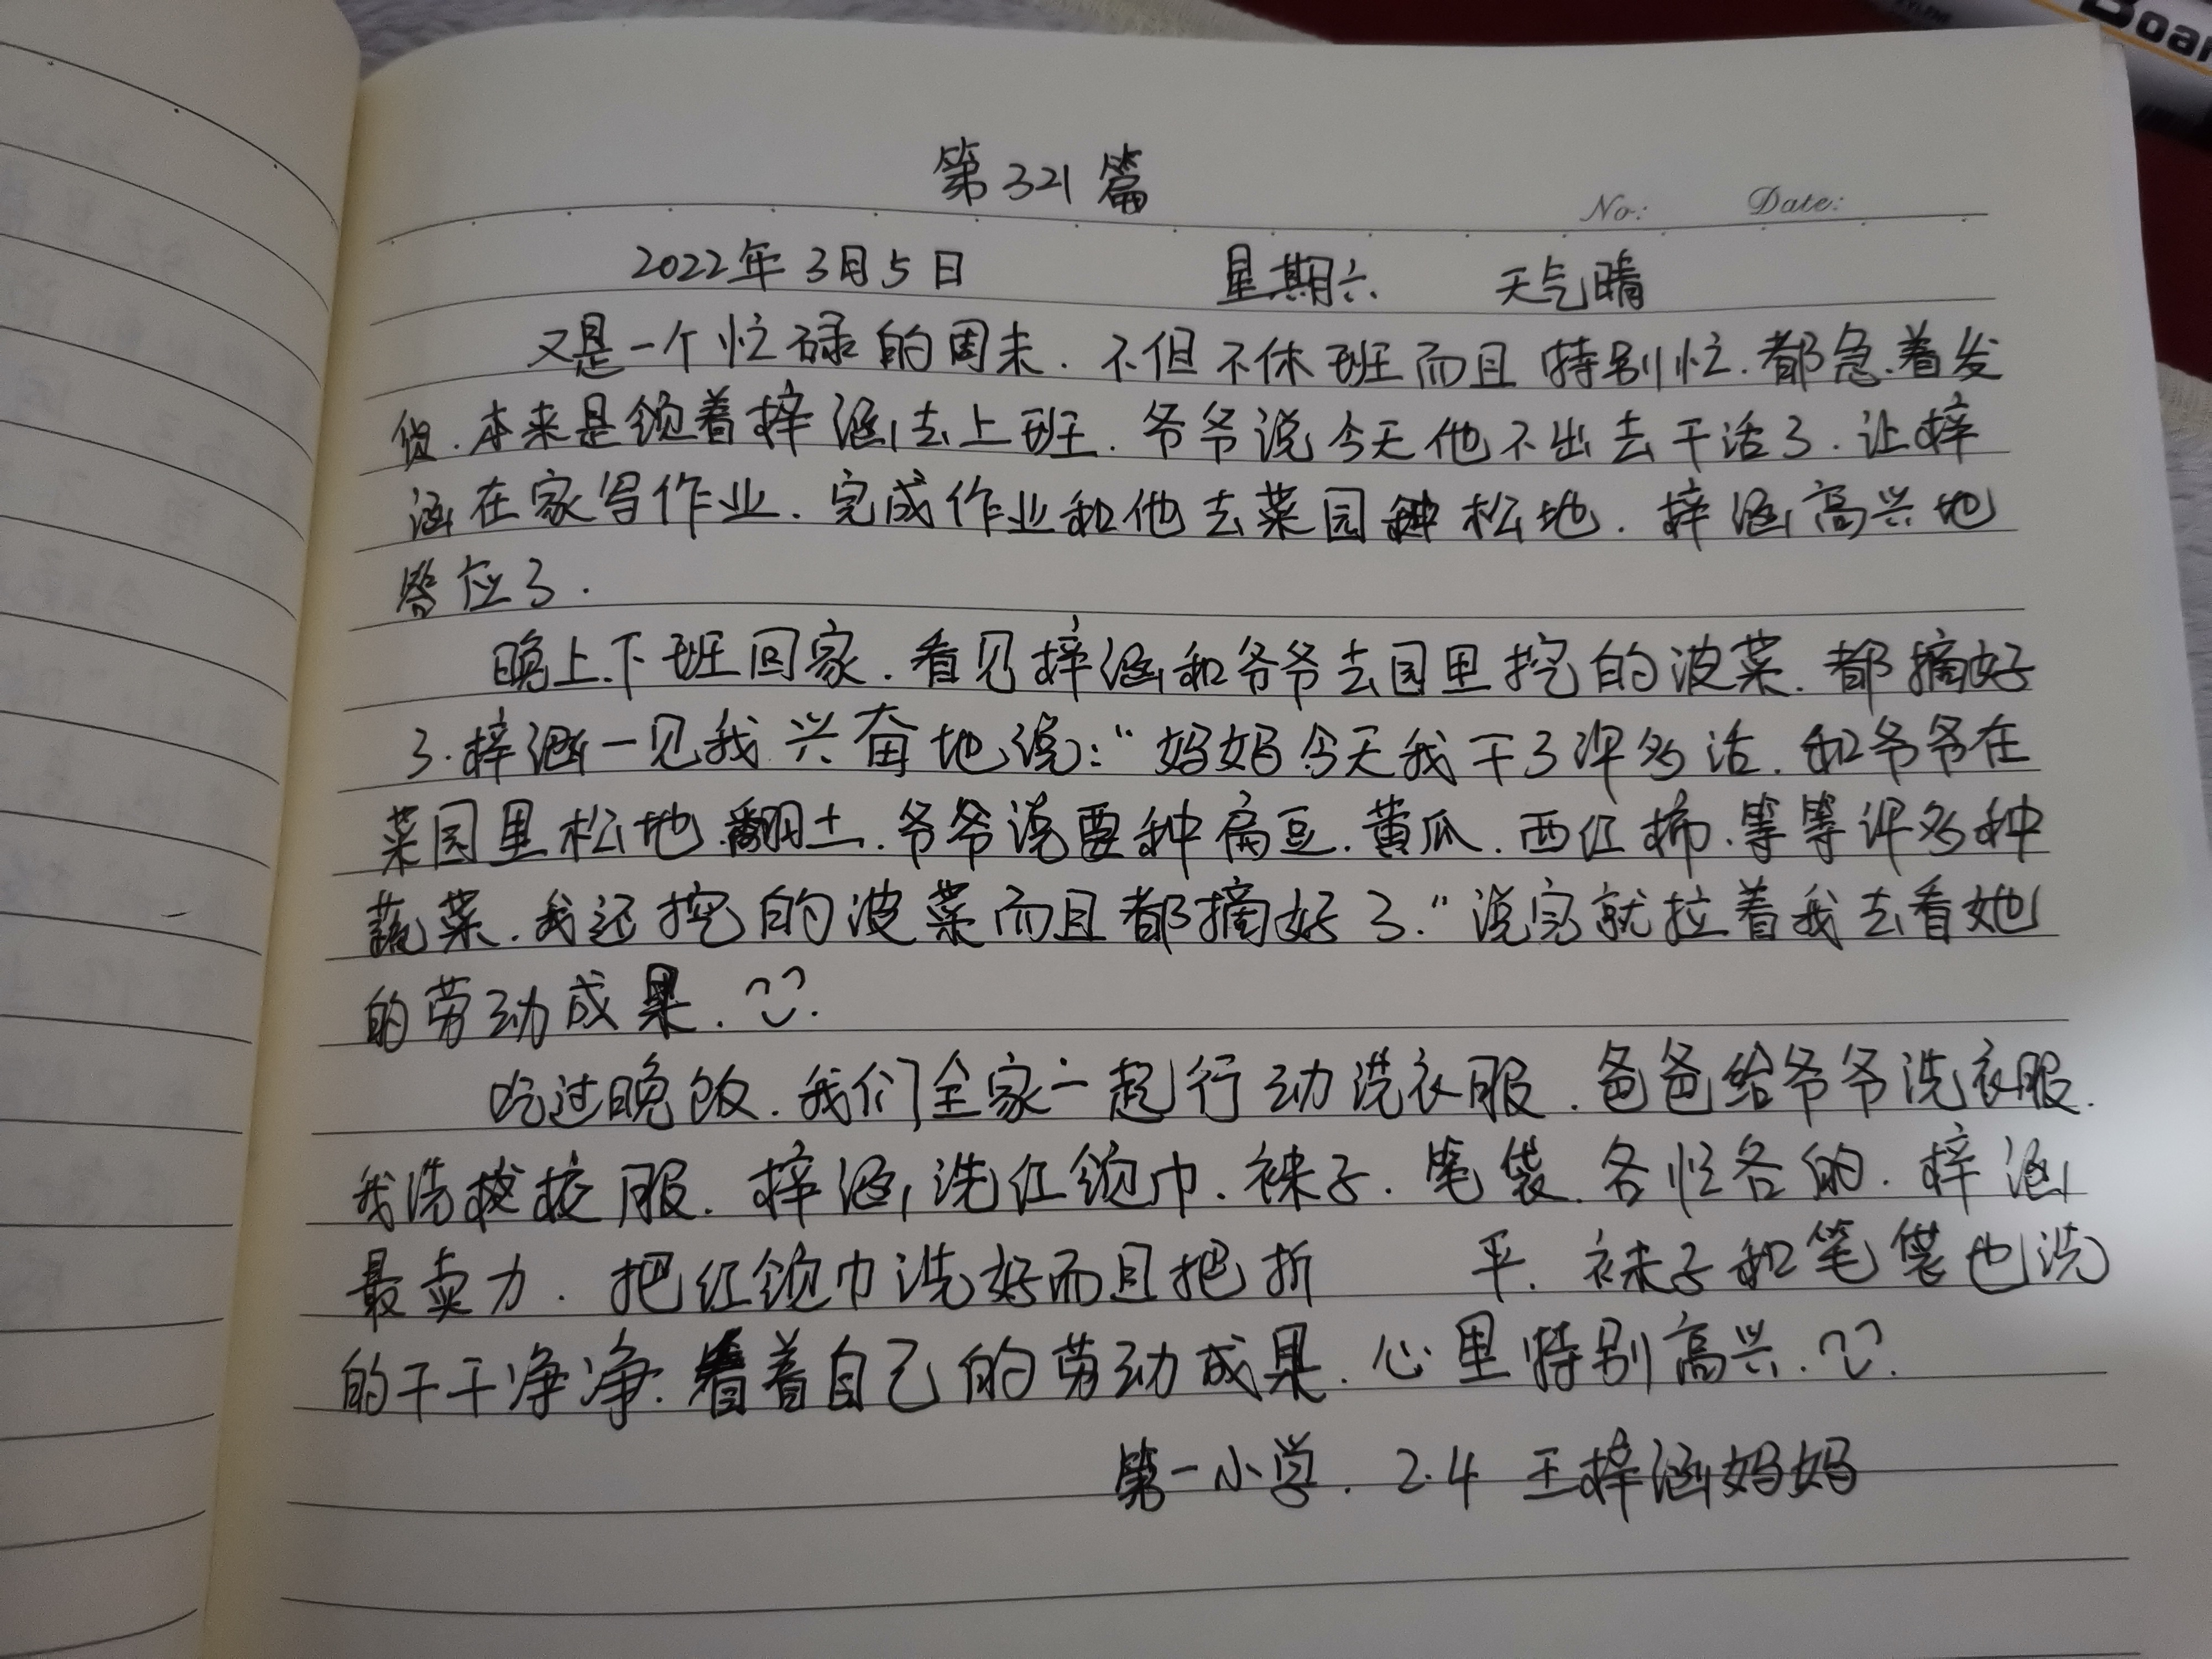 Boar
第321篇
No: Date:
2022年3月5日 星期六 天气晴
又是一个忙碌的周末.不但不休班而且特别忙.都急着发
货.本来是领着梓涵去上班.爷爷说今天他不出去干活了.让梓
涵在家写作业.完成作业和他去菜园种松地.梓涵高兴地
答应了.
晚上下班回家.看见梓涵和爷爷去园里挖的波菜.都摘好
了.梓涵一见我兴奋地说:"妈妈今天我干了许多活.和爷爷在
菜园里松地.翻土.爷爷说要种扁豆.黄瓜.西红柿.等等许多种
蔬菜.我还挖的波菜而且都摘好了."说完就拉着我去看她
的劳动成果.
吃过晚饭.我们全家一起行动洗衣服.爸爸给爷爷洗衣服.
我洗校校服.梓涵洗红领巾.袜子.笔袋.各忙各的.梓涵
最卖力.把红领巾洗好而且把折 平.袜子和笔袋也洗
的干干净净.看着自己的劳动成果.心里特别高兴.
第一小学.2.4 王梓涵妈妈